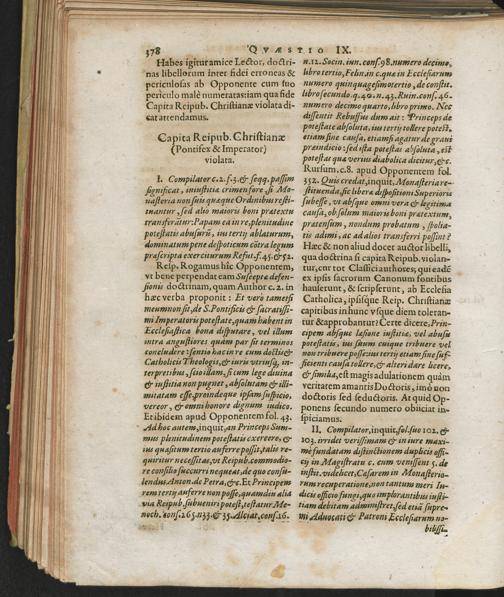 378 QVÆSTIO IX.
Habes igitur amice Lector, doctri-
nas libellorum inter fidei erroneas &
periculosas ab Opponente cum suo
periculo malè numeratas iam qua fide
Capita Reipub. Christianæ violata di-
cat attendamus.
Capita Reipub. Christianæ
(Pontifex & Imperator)
violata.
I. Compilator c. 2. f. 3. & seqq. passim
significat, iniustitiæ crimen fore, si Mo-
nasteria non suis quæque Ordinibus resti-
tuantur, sed alio maiori boni prætextu
transferātur: Papam ea in re, plenitudine
potestatis abusurū, ius tertij ablaturum,
dominatum pene despoticum cōtra legum
præscripta exerciturum Refut. f. 45. & 52.
Reip. Rogamus hîc Opponentem,
vt bene perpendat eam Susceptæ defen-
sionis doctrinam, quam Author c. 2. in
hæc verba proponit: Et verò tametsi
meum non sit, de S. Pontificis & sacratissi-
mi Imperatoris potestate, quam habent in
Ecclesiastica bona disputare, vel illum
intra angustiores quàm par sit terminos
concludere: sentio hac in re cum doctis &
Catholicis Theologis, & iuris vtriusq, in-
terpretibus, si illam, si cum lege diuina
& iustitia non pugnet, absolutam & illi-
mitatam esse, proindeque ipsam suspicio,
vereor, & omni honore dignum iudico.
Et ibidem apud Opponentem fol. 43.
Ad hoc autem, inquit, an Princeps Sum-
mus plenitudinem potestatis exercere, &
ius quæsitum tertio auferre possit, talis re-
quiritur necessitas, vt Reipub. commodio-
re consilio succurri nequeat, de quo consu-
lendus Anton. de Petra, &c. Et Principem
rem tertij auferre non posse, quamdiu alia
via Reipub. subueniri potest, testatur Me-
noch. cons. 265. n. 33. & 35. Alciat, cons. 16.
n. 12. Socin. iun. cons. 98. numero decimo,
libro tertio, Felin. in c. quæ in Ecclesiarum
numero quinquagesimo tertio, de constit.
libro secundo. q. 40. n. 43. Ruin. cons. 46.
numero decimo quarto, libro primo. Nec
dissentit Rebuffus dum ait: Princeps de
potestate absoluta, ius tertij tollere potest,
etiam sine causa, etiamsi agatur de graui
præiudicio: sed ista potestas absoluta, est
potestas quæ verius diabolica dicitur, &c.
Rursum, c. 8. apud Opponentem fol.
352. Quis credat, inquit, Monasteria re-
stituenda, sic liberæ dispositioni Superioris
subesse, vt absque omni vera & legitima
causa, ob solum maioris boni prætextum,
prætensum, nondum probatum, spolia-
tis adimi, ac ad alios transferri possint?
Hæc & non aliud docet auctor libelli,
qua doctrina si capita Reipub. violan-
tur, eur tot Classici authores; qui eadē
ex ipsis sacrorum Canonum fontibus
hauserunt, & scripserunt, ab Ecclesia
Catholica, ipsisque Reip. Christianæ
capitibus in hunc vsque diem toleran-
tur & approbantur? Certe dicere, Prin-
cipem absque læsione iustitiæ, vel abusu
potestatis, ius suum cuique tribuere vel
non tribuere posse: ius tertij etiam sine suf-
ficienti causa tollere, & alteri dare licere,
& similia, est magis adulationem quàm
veritatem amantis Doctoris, imò non
doctoris sed seductoris. At quid Op-
ponens secundo numero obijciat in-
spiciamus.
II. Compilator, inquit, fol. suo 102. &
103. irridet verissimam & in iure maxi-
mè fundatam distinctionem duplicis offi-
cij in Magistratu c. cum venissent 5. de
instit. videlicet, Cæsarem in Monasterio-
rum recuperatione, non tantum meri Iu-
dicis officio fungi, quo implorantibus iusti-
tiam debitam administret, sed etiā supre-
mi Aduocati & Patroni Ecclesiarum no-
bilissi-